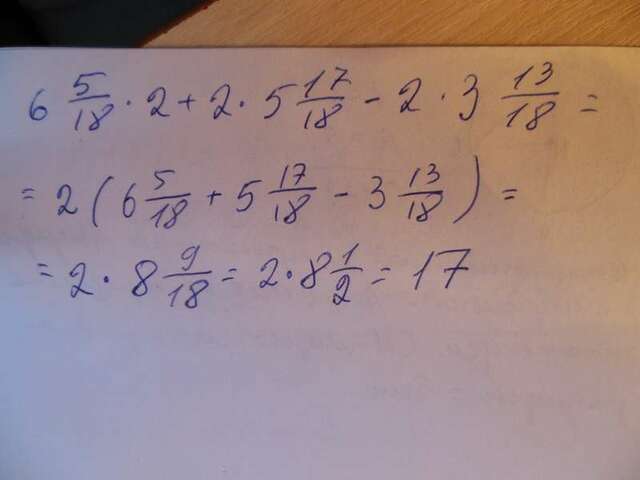 6 5/18 · 2 + 2 · 5 17/18 - 2 · 3 13/18 =
= 2 ( 6 5/18 + 5 17/18 - 3 13/18 ) =
= 2 · 8 9/18 = 2 · 8 1/2 = 17